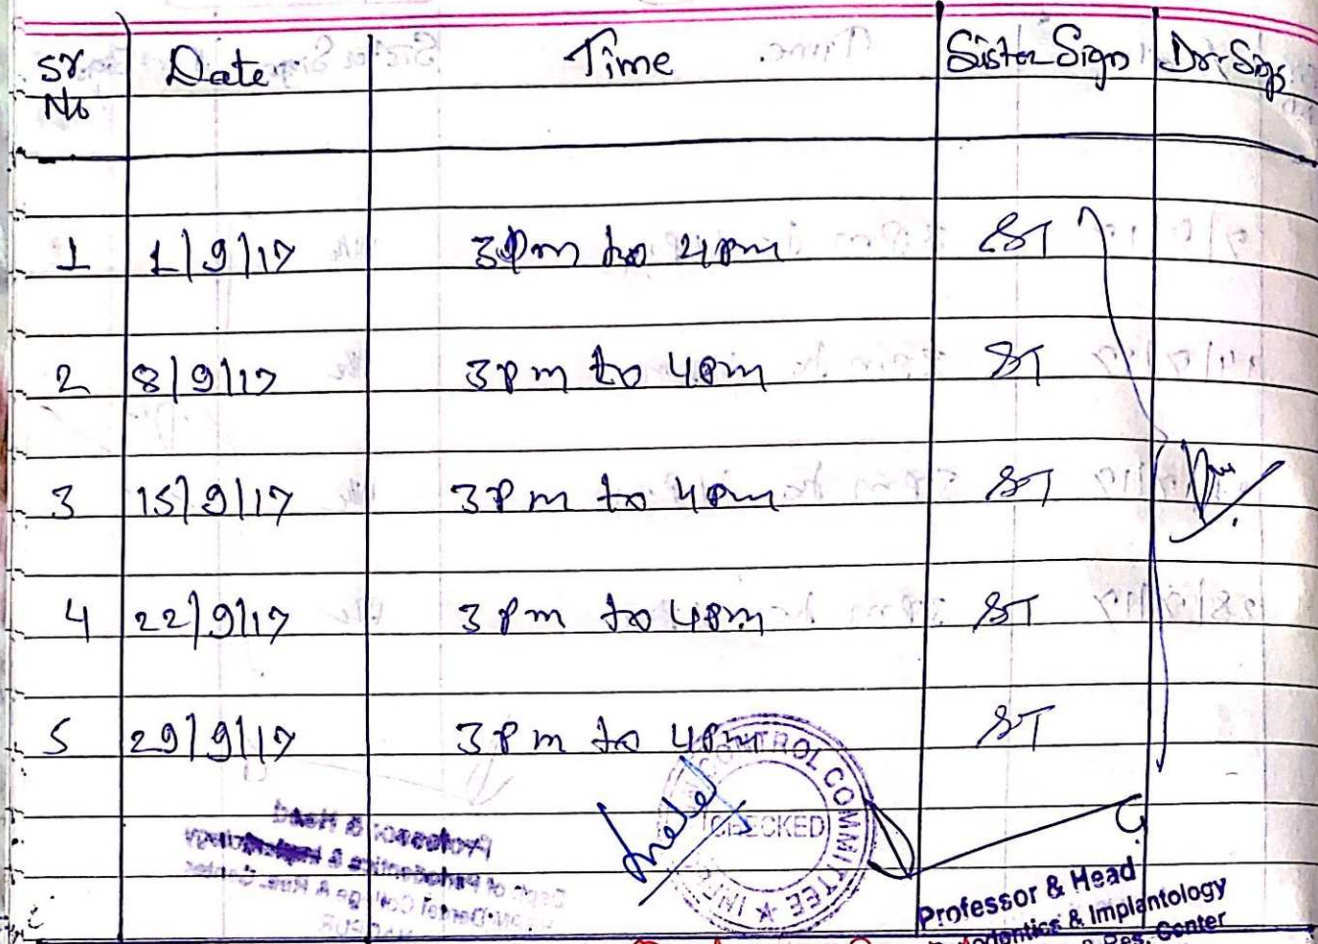 Sr. No Date Time Sister Sign Dr. Sign
1 1/9/17 3pm to 4pm ST
2 8/9/17 3pm to 4pm ST
3 15/9/17 3pm to 4pm ST
4 22/9/17 3pm to 4pm ST
5 29/9/17 3pm to 4pm ST
CONTROL COMMITTEE
CHECKED
Professor & Head
Professor & Head
Implantology
& Res. Center